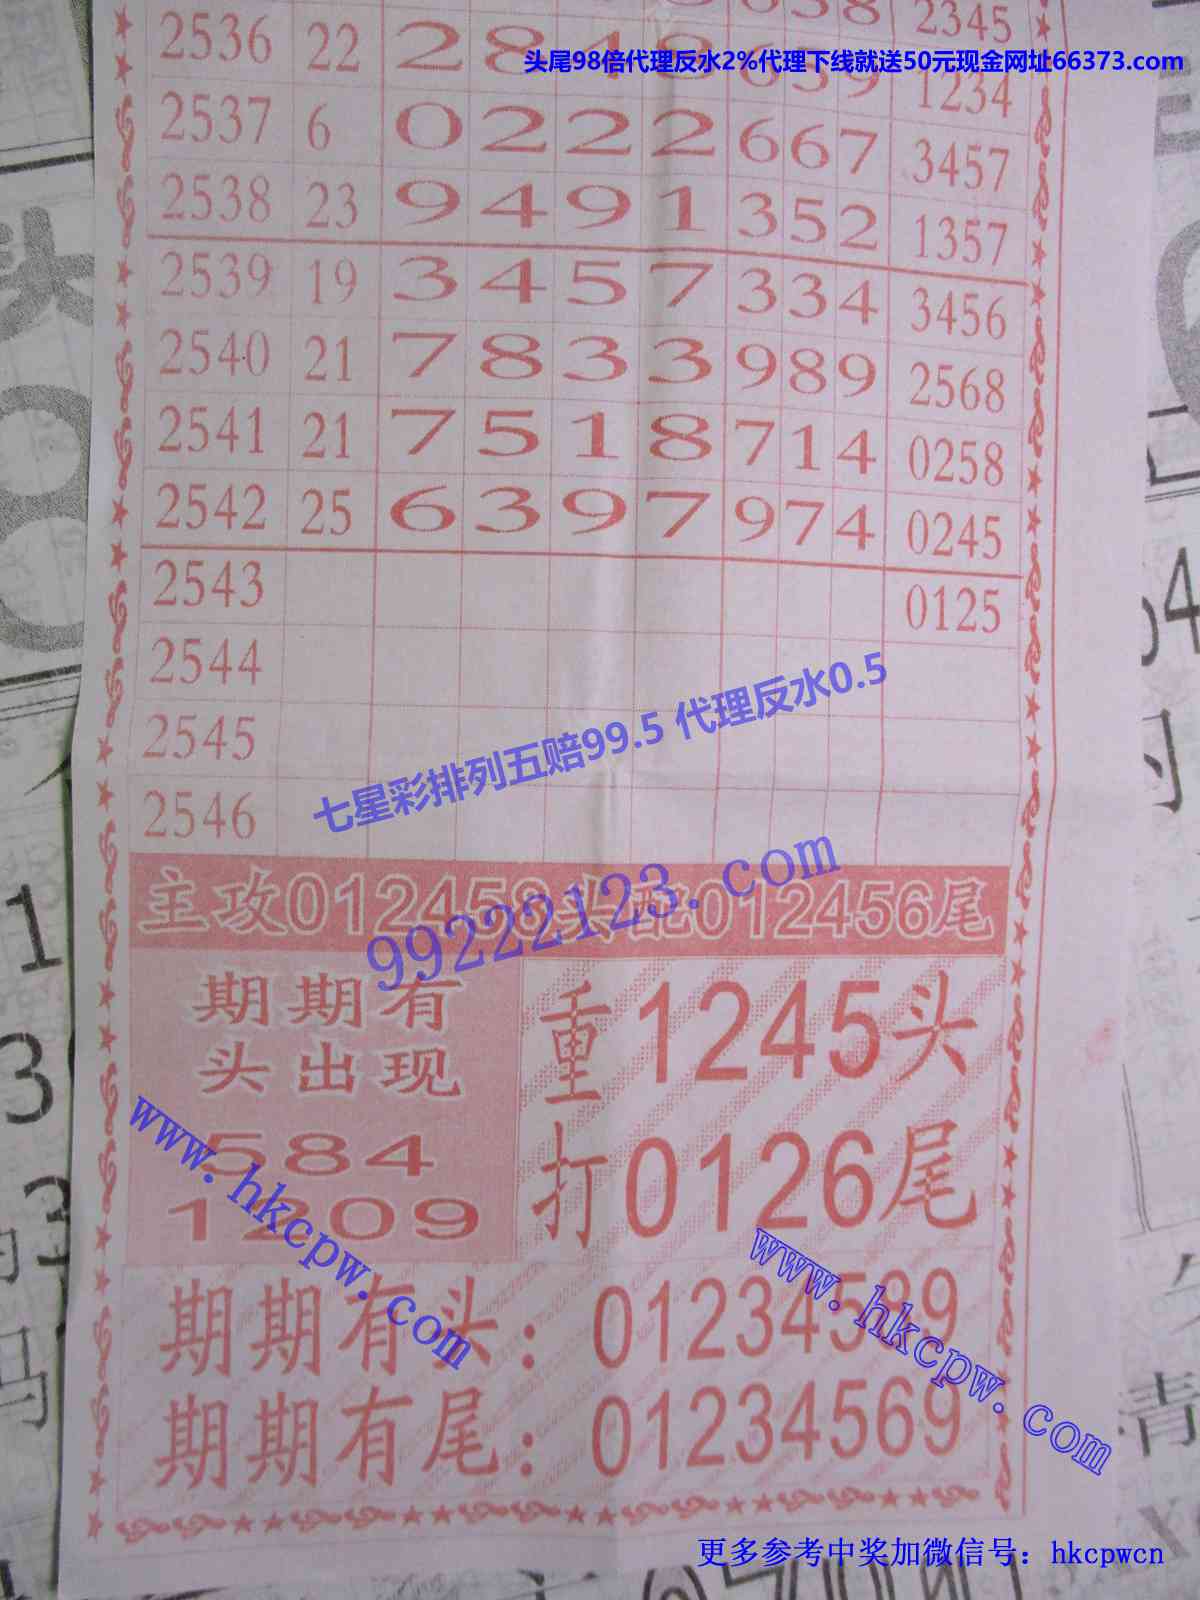 2345
头尾98倍代理反水2%代理下线就送50元现金网址66373.com
2536 22 2 8 4 8 6 3 9 1234
2537 6 0 2 2 2 6 6 7 3457
2538 23 9 4 9 1 3 5 2 1357
2539 19 3 4 5 7 3 3 4 3456
2540 21 7 8 3 3 9 8 9 2568
2541 21 7 5 1 8 7 1 4 0258
2542 25 6 3 9 7 9 7 4 0245
2543 0125
2544
2545
2546
七星彩排列五赔99.5 代理反水0.5
99222123.com
主攻012458头配012456尾
期期有
头出现
584
1209
重1245头
打0126尾
期期有头：01234589
期期有尾：01234569
www.hkcpw.com
www.hkcpw.com
更多参考中奖加微信号：hkcpwcn